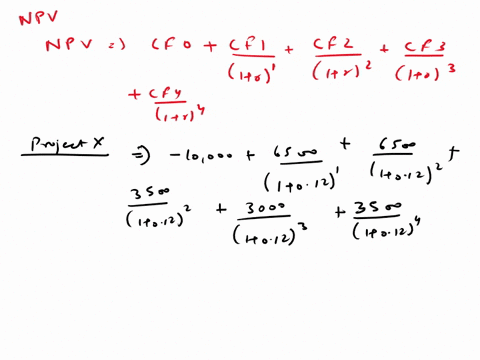 NPV
NPV => CF0 + CF1/(1+r)^1 + CF2/(1+r)^2 + CF3/(1+r)^3
+ CF4/(1+r)^4
Project X => -10,000 + 6500/(1+0.12)^1 + 6500/(1+0.12)^2 +
3500/(1+0.12)^2 + 3000/(1+0.12)^3 + 3500/(1+0.12)^4